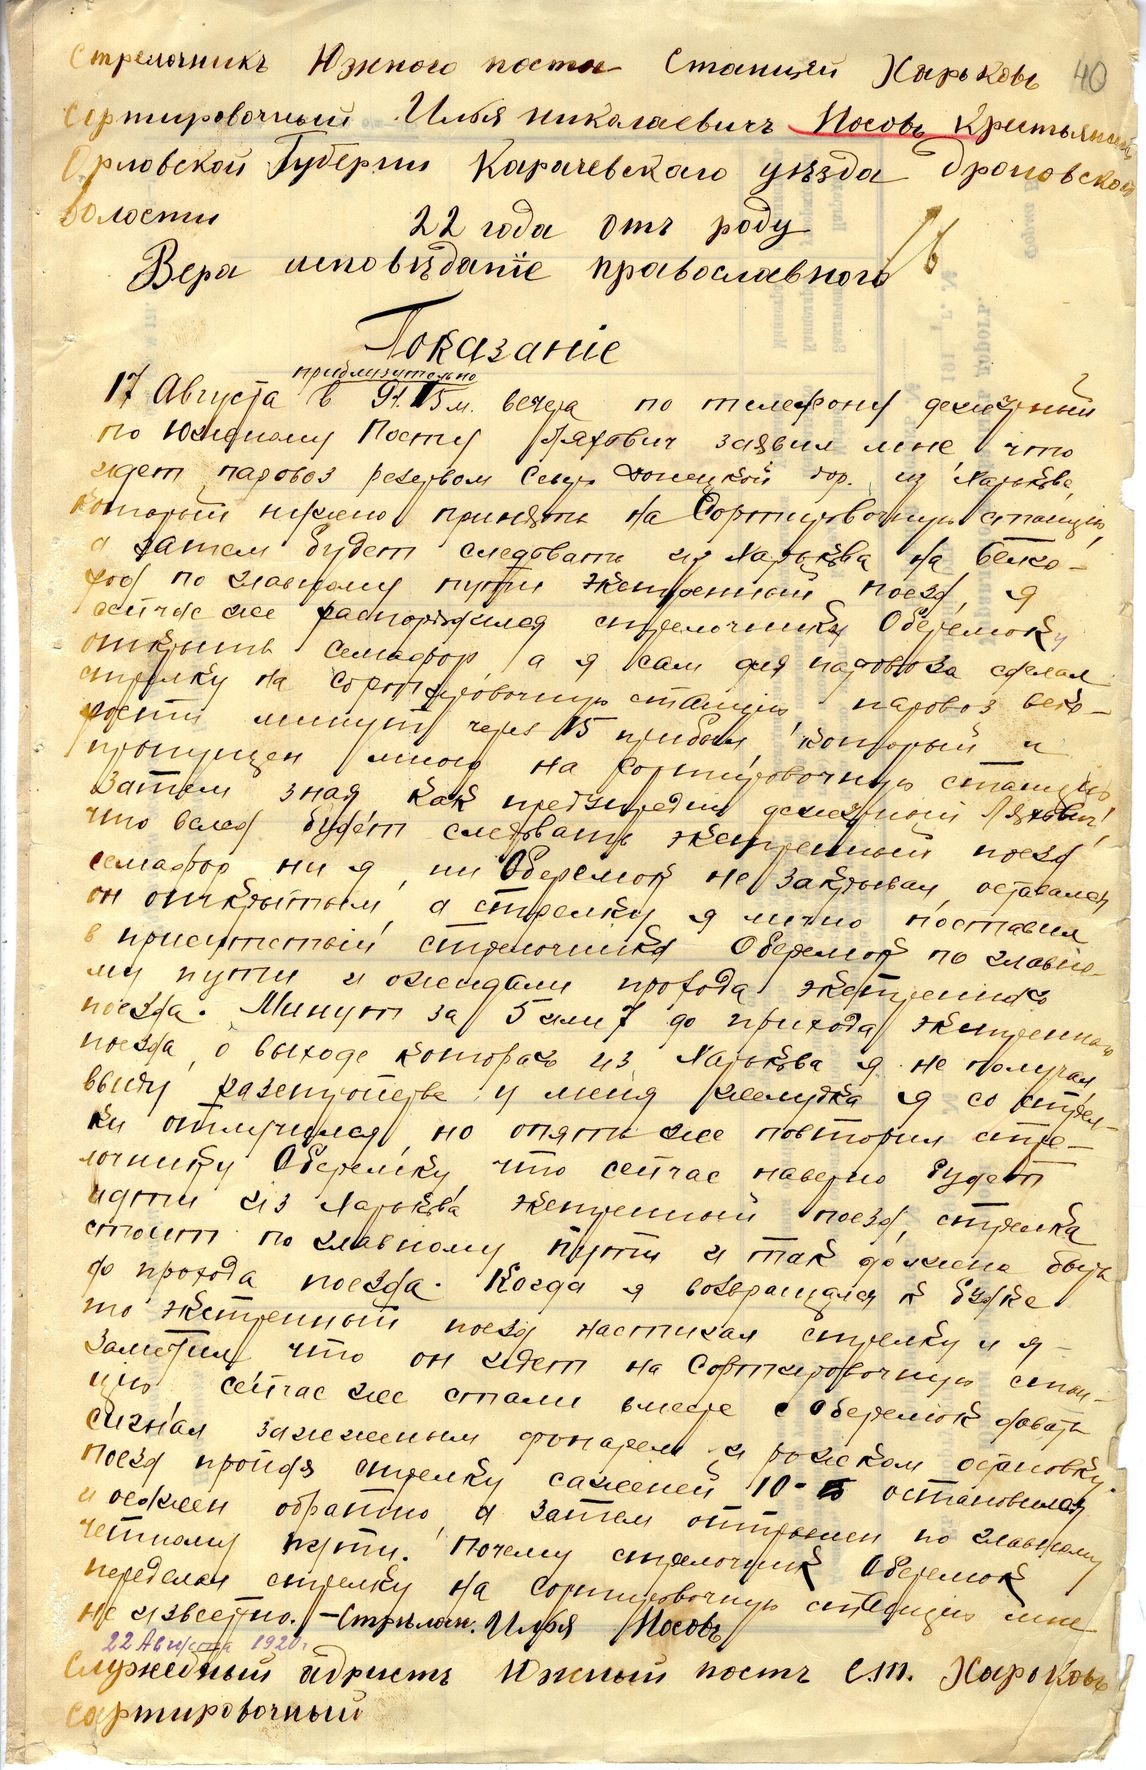 40
Стрелочникъ Южного поста Станцеи Харьковъ
Сортировочный Илья николаевичъ Носовъ Крестьянин
Орловской Губерни Карачевскаго уѣзда Дроновской
волости 22 года отъ роду
Вера исповѣданiе православного
Показанiе
приблизительно
17 Августа в 9 ч. 15 м. вечера по телефону дежурный
по Южному Посту Ляхович заявил мне что
идет паровоз резервом Север Донецкой дор. из Харькова,
который нужно принять на Сортировочную станцию,
а затем будет следовать из Харькова на Белго-
род по главному пути экстренный поезд, я
сейчас же распорядился стрелочнику Оберемоку
открыть семафор а я сам для паровоза сделал
стрелку на сортировочную станцию, паровоз
минут через 15 прибыл, который и
пропущен мною на Сортировочную станцию
Затем зная как предупредил дежурный Ляхович,
что вслед будет следовать экстренный поезд,
семафор ни я, ни Оберемок не закрывал, оставался
он открытым, а стрелку я лично поставил
в присутствии стрелочника Оберемок по главно-
му пути и ожидали прохода экстренного
поезда. Минут за 5 или 7 до прихода экстренного
поезда, о выходе которого из Харькова я не получал,
ввиду расстройства у меня желудка я со стрел-
ки отлучился, но опять же повторил стре-
лочнику Оберемку, что сейчас наверно будет
идти из Харькова экстренный поезд, стрелка
стоит по главному пути и так должна быть
до прохода поезда. Когда я возвращался к будке
то экстренный поезд настигал стрелку и я
заметил, что он идет на Сортировочную стан-
цию сейчас же стали вместе с Оберемок давать
сигнал зажженным фонарем и рожком остановку.
Поезд пройдя стрелку саженей 10- остановился
и осажен обратно, а затем отправлен по главному
четному пути. Почему стрелочник Оберемок
переделал стрелку на Сортировочную станцию мне
не известно. – Стрѣлоч. Илья Носовъ
22 Августа 1920 г.
Служебный адристъ Южный постъ С.т. Харьковъ
сартировочный